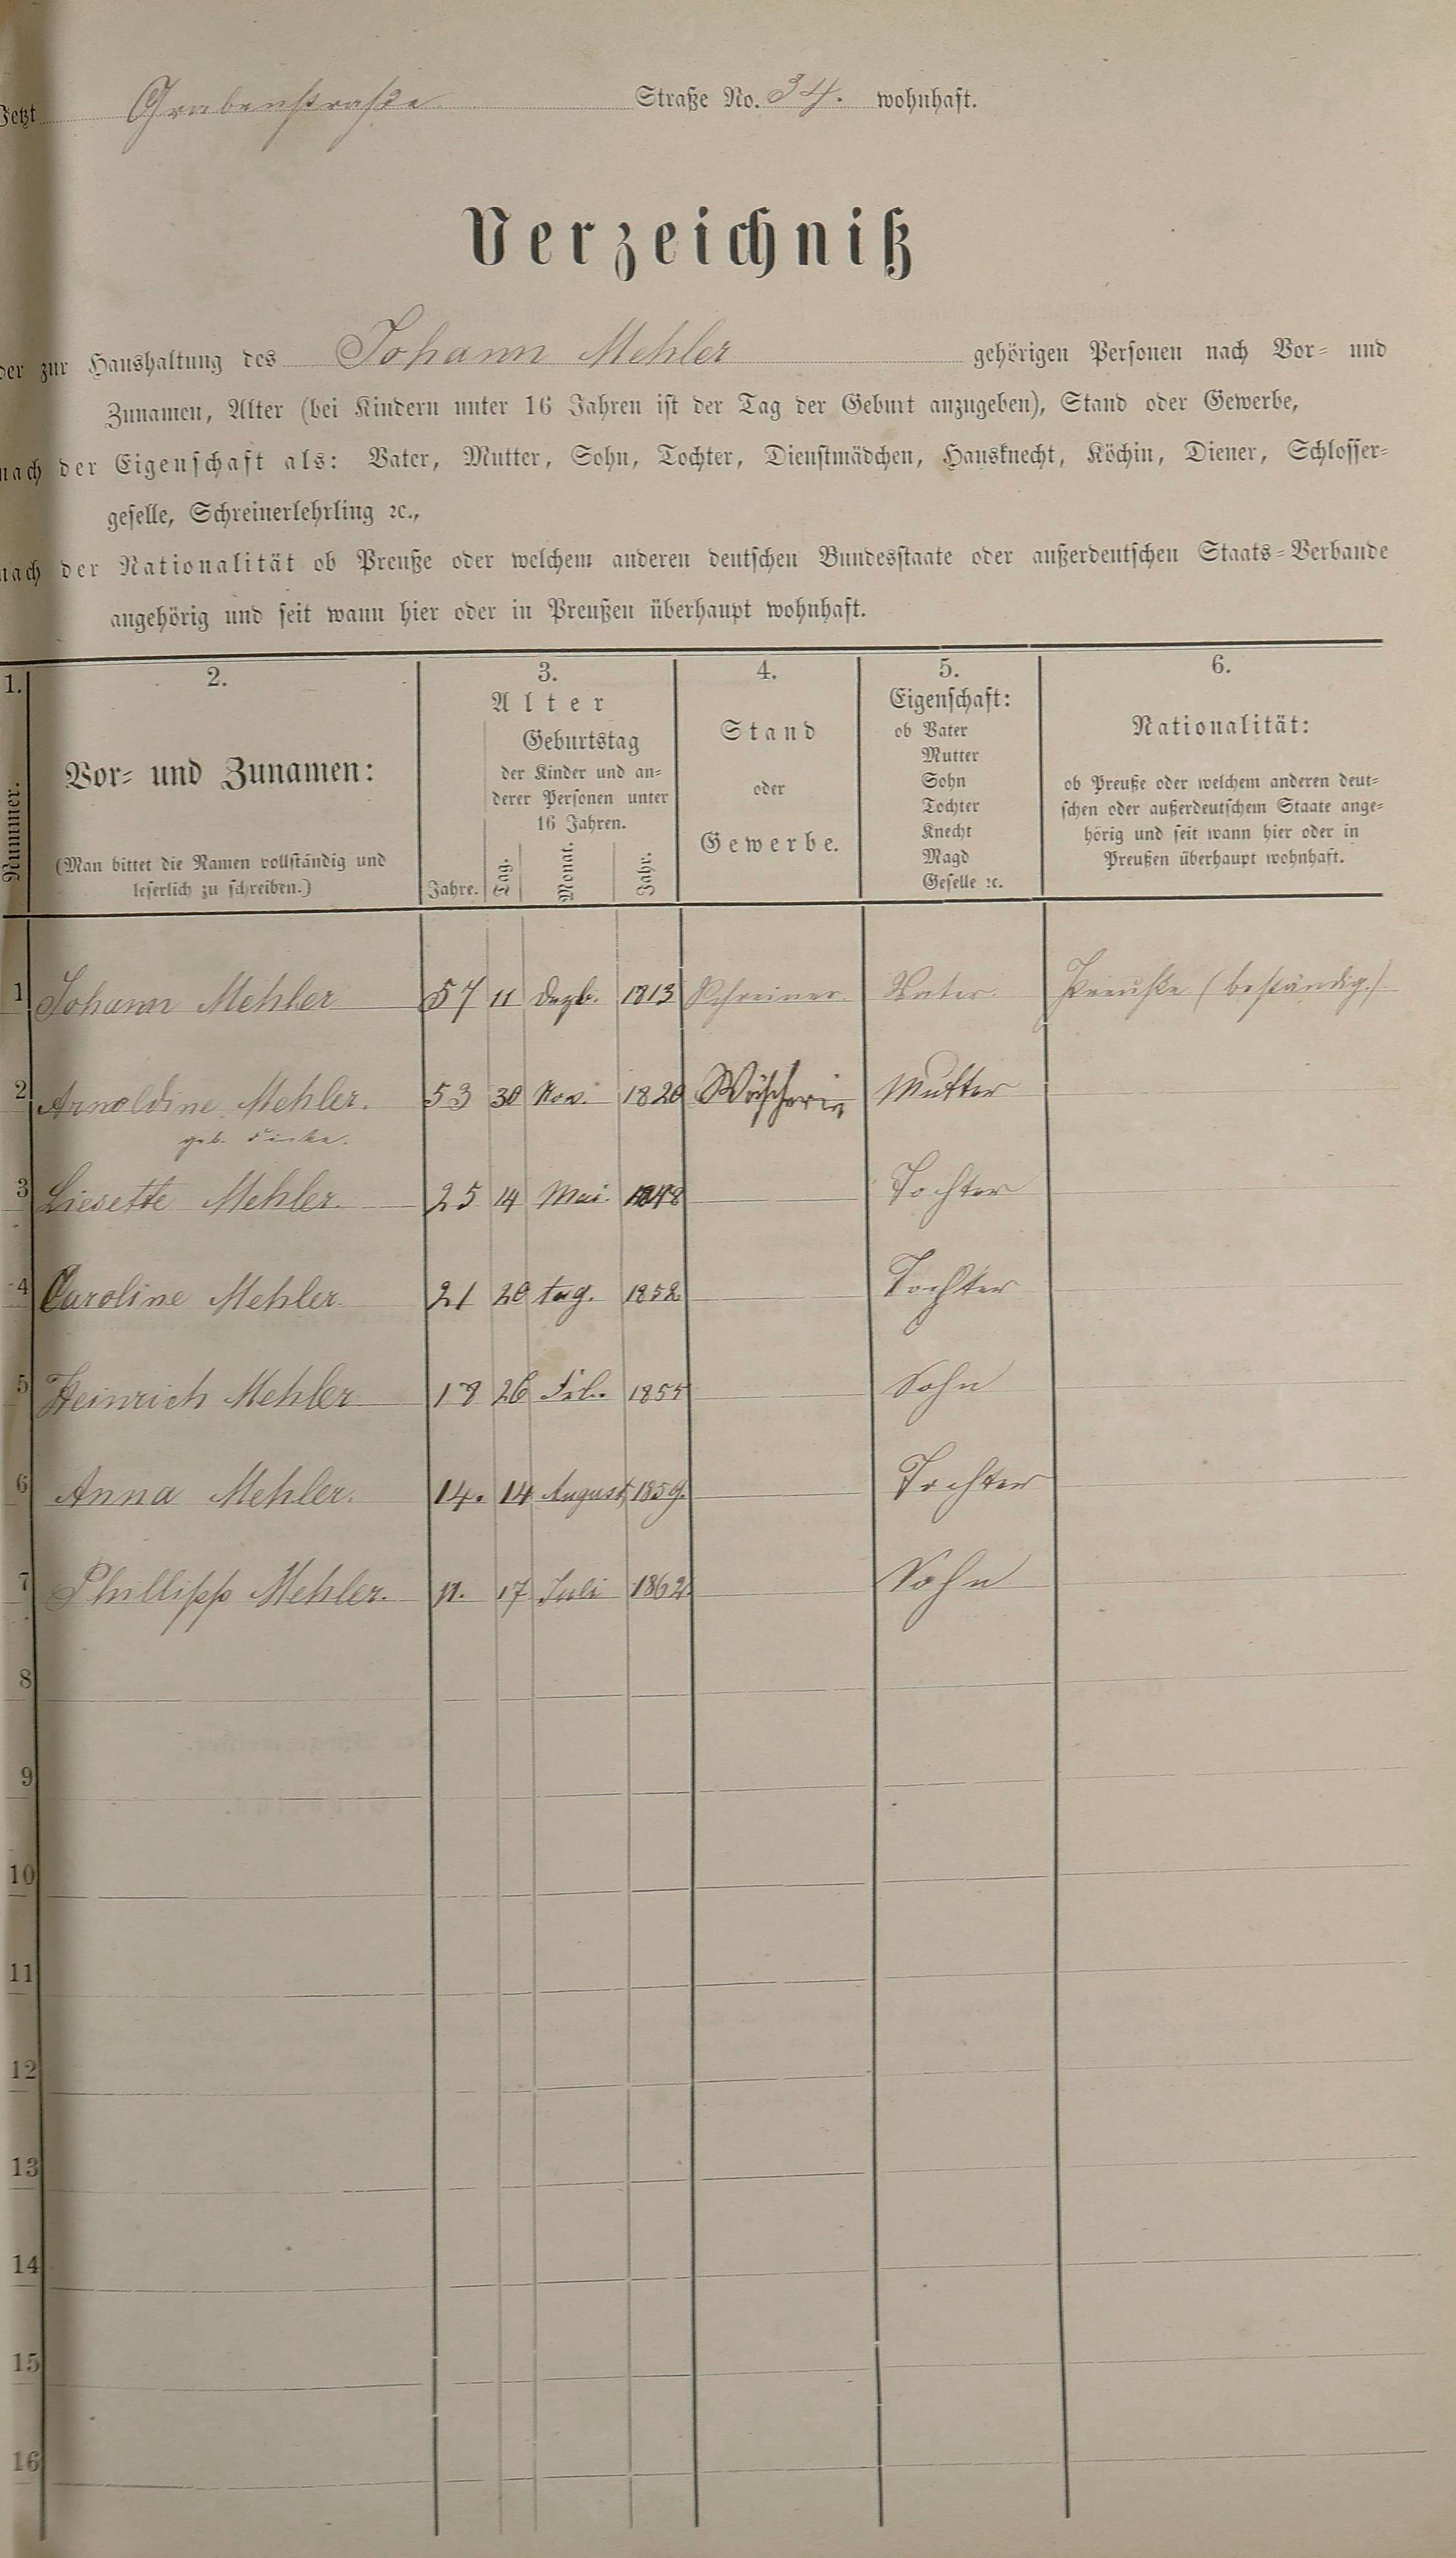 Jetzt Grabenstraße Straße No. 34. wohnhaft.
Verzeichniß
der zur Haushaltung des Johann Mehler gehörigen Personen nach Vor- und
Zunamen, Alter (bei Kindern unter 16 Jahren ist der Tag der Geburt anzugeben), Stand oder Gewerbe,
nach der Eigenschaft als: Vater, Mutter, Sohn, Tochter, Dienstmädchen, Hausknecht, Köchin, Diener, Schlosser-
geselle, Schreinerlehrling ꝛc.,
nach der Nationalität ob Preuße oder welchem anderen deutschen Bundesstaate oder außerdeutschen Staats-Verbande
angehörig und seit wann hier oder in Preußen überhaupt wohnhaft.
1. 2. 3. 4. 5. 6.
Nummer.
Vor- und Zunamen:
(Man bittet die Namen vollständig und
leserlich zu schreiben.)
Alter
Geburtstag
der Kinder und an-
derer Personen unter
16 Jahren.
Jahre. Tag. Monat. Jahr.
Stand
oder
Gewerbe.
Eigenschaft:
ob Vater
Mutter
Sohn
Tochter
Knecht
Magd
Geselle ꝛc.
Nationalität:
ob Preuße oder welchem anderen deut-
schen oder außerdeutschem Staate ange-
hörig und seit wann hier oder in
Preußen überhaupt wohnhaft.
1 Johann Mehler 57 11 Dezb. 1813 Schreiner. Vater. Preuße (beständig.)
2 Arnoldine Mehler. 53 30 Nov. 1820 Wäscherin Mutter
geb.
3 Liesette Mehler. 25 14 Mai. 1848 Tochter
4 Caroline Mehler. 21 20 1852 Tochter
5 Heinrich Mehler 18 26 Feb. 1855 Sohn
6 Anna Mehler. 14. 14 August 1859. Tochter
7 Phillipp Mehler. 11. 17 Juli 1862. Sohn
8
9
10
11
12
13
14
15
16